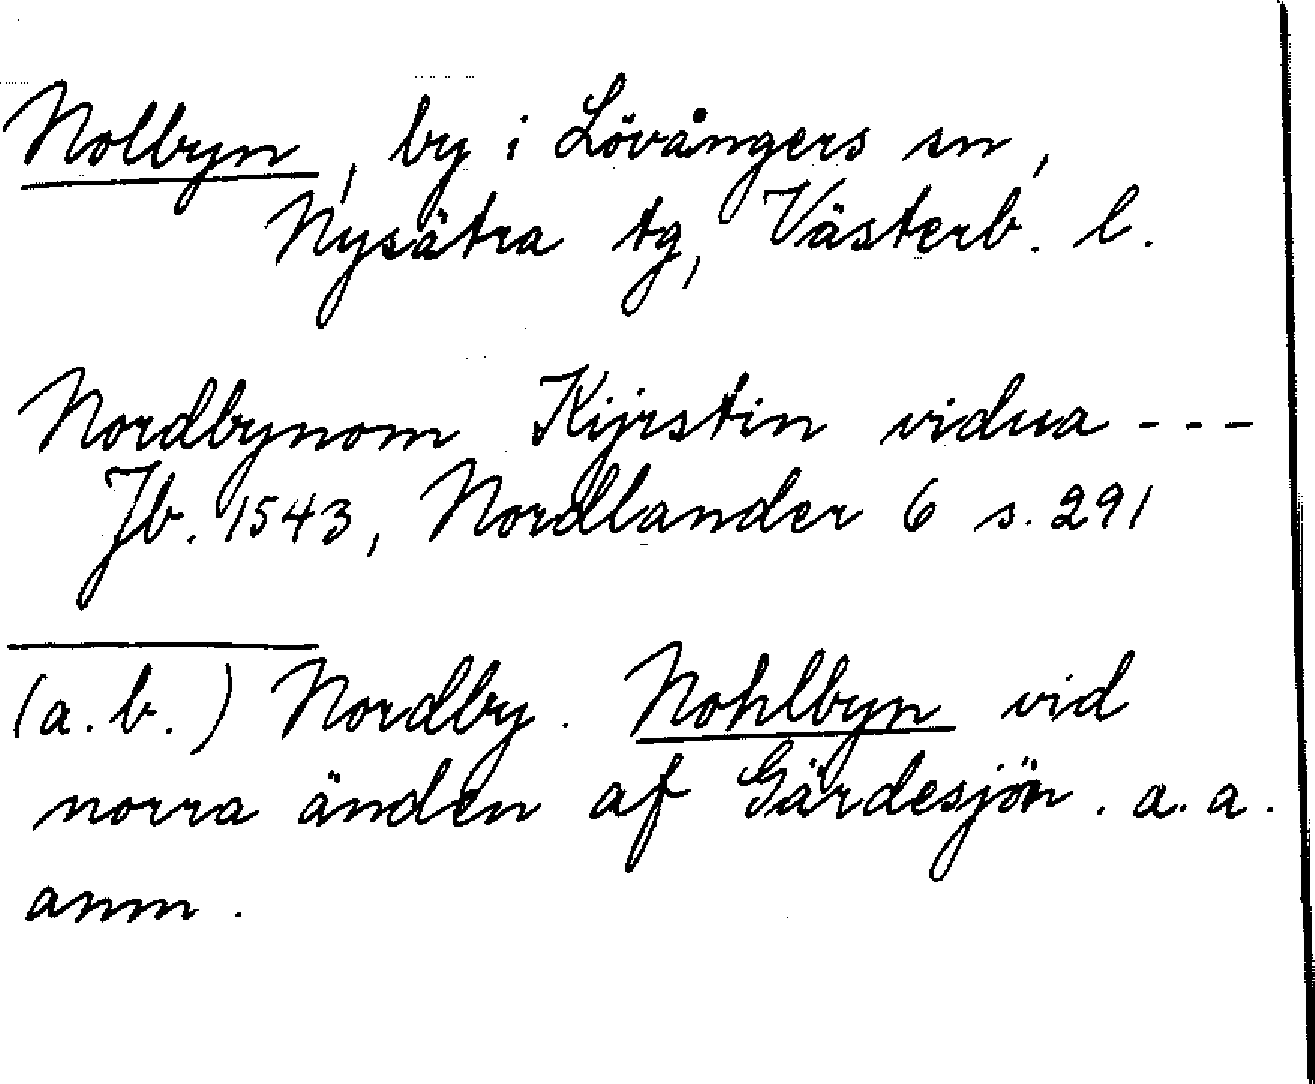 Nolbyn, by i Lövångers sn,
Nysätra tg, Västerb. l.
Nordbynom Kijrstin vidua ---
Jb. 1543, Nordlander 6 s. 291
(a. b.) Nordby. Nohlbyn vid
norra änden af Gärdesjön. a. a.
anm.